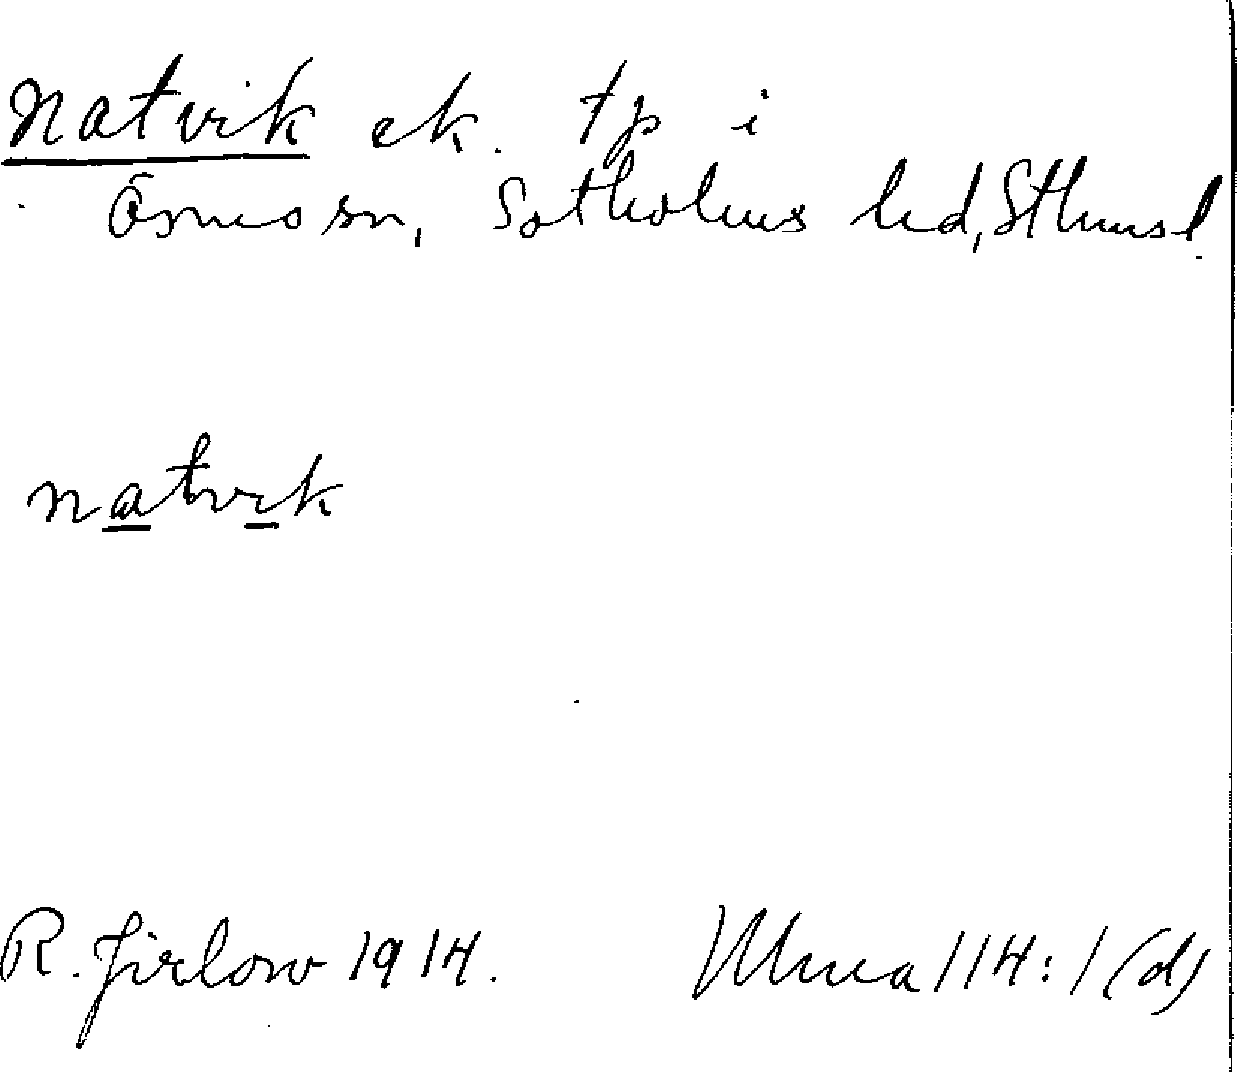 Natvik ek. tp i
Ösmo sn, Sotholms hd, Sthmsl.
natvik
R. Jirlow 1914.
114:1 (d)